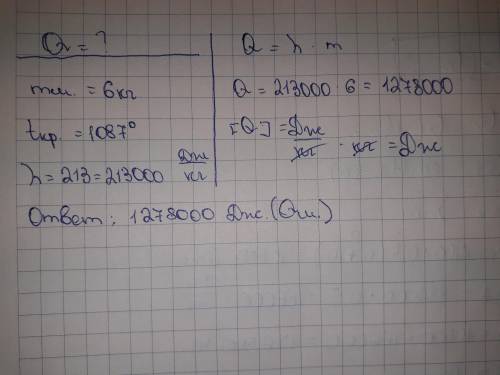 Q = ?
mм. = 6 кг
tкр. = 1087°
λ = 213 = 213000 Дж/кг
Q = λ · m
Q = 213000 · 6 = 1278000
[Q] = Дж/кг · кг = Дж
Ответ: 1278000 Дж. (Qм.)